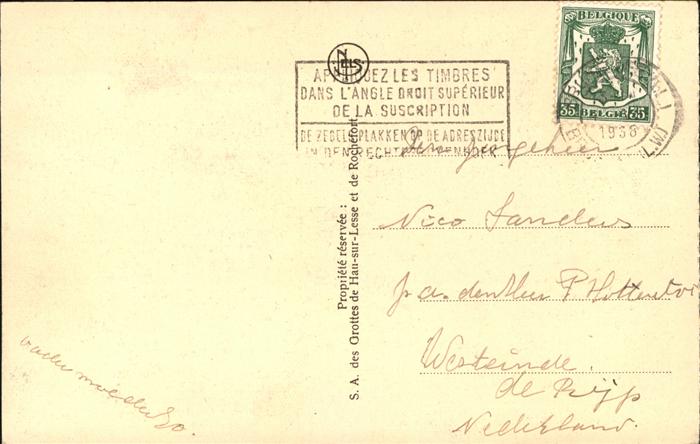 NELS
APPLIQUEZ LES TIMBRES
DANS L'ANGLE DROIT SUPÉRIEUR
DE LA SUSCRIPTION
DE ZEGELS PLAKKEN OP DE ADRESZIJDE
IN DEN RECHTER BOVENHOEK
BELGIQUE
35 BELGIË 35
1936
Propriété réservée :
S. A. des Grottes de Han-sur-Lesse et de Rochefort
Den jongeheer
Nico Sanders
p a. den Heer P Hottentot
Westeinde.
de Rijp
Nederland.